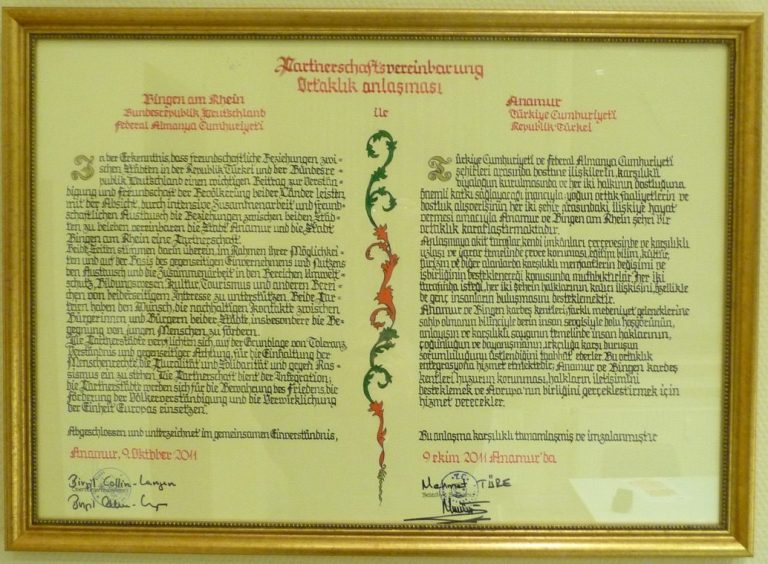 Partnerschaftsvereinbarung
Ortaklık anlaşması
Bingen am Rhein
Bundesrepublik Deutschland
Federal Almanya Cumhuriyeti
ile
Anamur
Türkiye Cumhuriyeti
Republik Türkei
In der Erkenntnis, dass freundschaftliche Beziehungen zwi-
schen Städten in der Republik Türkei und der Bundesre-
publik Deutschland einen wichtigen Beitrag zur Verstän-
digung und Freundschaft der Bevölkerung beider Länder leisten
mit der Absicht, durch intensive Zusammenarbeit und freund-
schaftlichen Austausch die Beziehungen zwischen beiden Städ-
ten zu beleben vereinbaren die Stadt Anamur und die Stadt
Bingen am Rhein eine Partnerschaft.
Beide Seiten stimmen darin überein, im Rahmen ihrer Möglichkei-
ten und auf der Basis des gegenseitigen Einvernehmens und Nutzens
den Austausch und die Zusammenarbeit in den Bereichen Umwelt-
schutz, Bildungswesen, Kultur, Tourismus und anderen Berei-
chen von beiderseitigem Interesse zu unterstützen. Beide Par-
teien haben den Wunsch, die nachhaltigen Kontakte zwischen
Bürgerinnen und Bürgern beider Städte, insbesondere die Be-
gegnung von jungen Menschen zu fördern.
Die Partnerstädte verpflichten sich, auf der Grundlage von Toleranz,
Verständnis und gegenseitiger Achtung, für die Einhaltung der
Menschenrechte, die Pluralität und Solidarität und gegen Ras-
sismus ein zu stehen. Die Partnerschaft dient der Integration;
die Partnerstädte werden sich für die Bewahrung des Friedens, die
Förderung der Völkerverständigung und die Verwirklichung
der Einheit Europas einsetzen.
Abgeschlossen und unterzeichnet im gemeinsamen Einverständnis,
Anamur, 9. Oktober 2011
Birgit Collin-Langen
Türkiye Cumhuriyeti ve Federal Almanya Cumhuriyeti
şehirleri arasında dostane ilişkilerin, karşılıklı
diyaloğun kurulmasında ve her iki halkının dostluğuna
önemli katkı sağlayacağı inancıyla, yoğun ortak faaliyetlerin ve
dostluk alışverişinin her iki şehir arasındaki ilişkiye hayat
vermesi amacıyla Anamur ve Bingen am Rhein şehri bir
ortaklık kararlaştırmaktadır.
Anlaşmaya akit taraflar, kendi imkânları çerçevesinde ve karşılıklı
uzlaşı ve yarar temelinde çevre koruması, eğitim bilim, kültür,
turizm ve diğer alanlarda karşılıklı menfaatlerin değişimi ve
işbirliğinin destekleneceği konusunda mutabıktırlar. Her iki
tarafında isteği, her iki şehrin halklarının kalıcı ilişkisini, özellikle
de genç insanların buluşmasını desteklemektir.
Anamur ve Bingen kardeş kentleri, farklı medeniyet geleneklerine
sahip olmanın bilinciyle derin insan sevgisiyle dolu hoşgörünün,
anlayışın ve karşılıklı saygının temelinde insan haklarının,
çoğunluğun ve dayanışmanın, ırkçılığa karşı duruşun
sorumluluğunu üstlendiğini taahhüt ederler. Bu ortaklık
entegrasyona hizmet etmektedir; Anamur ve Bingen kardeş
kentleri huzurun korunması, halkların iletişimini
desteklemek ve Avrupa'nın birliğini gerçekleştirmek için
hizmet verecekler.
Bu anlaşma karşılıklı tamamlaşmış ve imzalanmıştır
9 ekim 2011 Anamur'da
Mehmet TÜRE